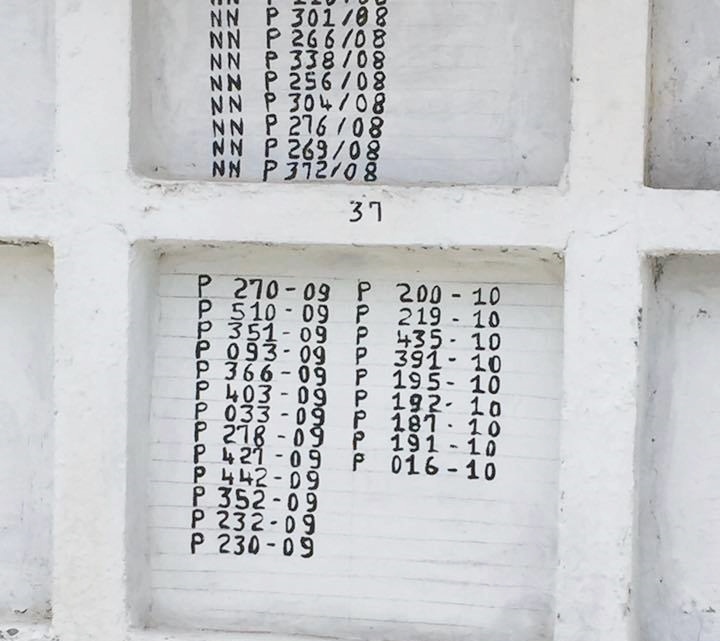 NN P 301/08
NN P 266/08
NN P 338/08
NN P 256/08
NN P 304/08
NN P 276/08
NN P 269/08
NN P 372/08
37
P 270-09 P 200-10
P 510-09 P 219-10
P 351-09 P 435-10
P 093-09 P 391-10
P 366-09 P 195-10
P 403-09 P 192-10
P 033-09 P 187-10
P 278-09 P 191-10
P 427-09 P 016-10
P 442-09
P 352-09
P 232-09
P 230-09